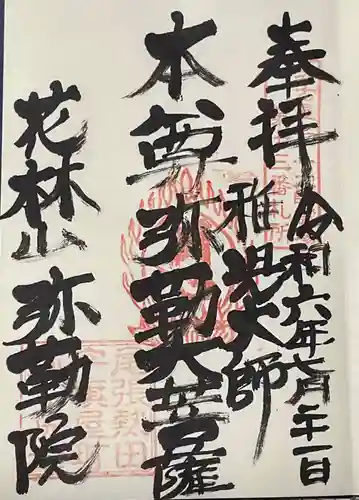 奉拝
令和六年七月廿一日
稚児大師
本尊弥勒大菩薩
花林山弥勒院
三番札所
尾張熱田